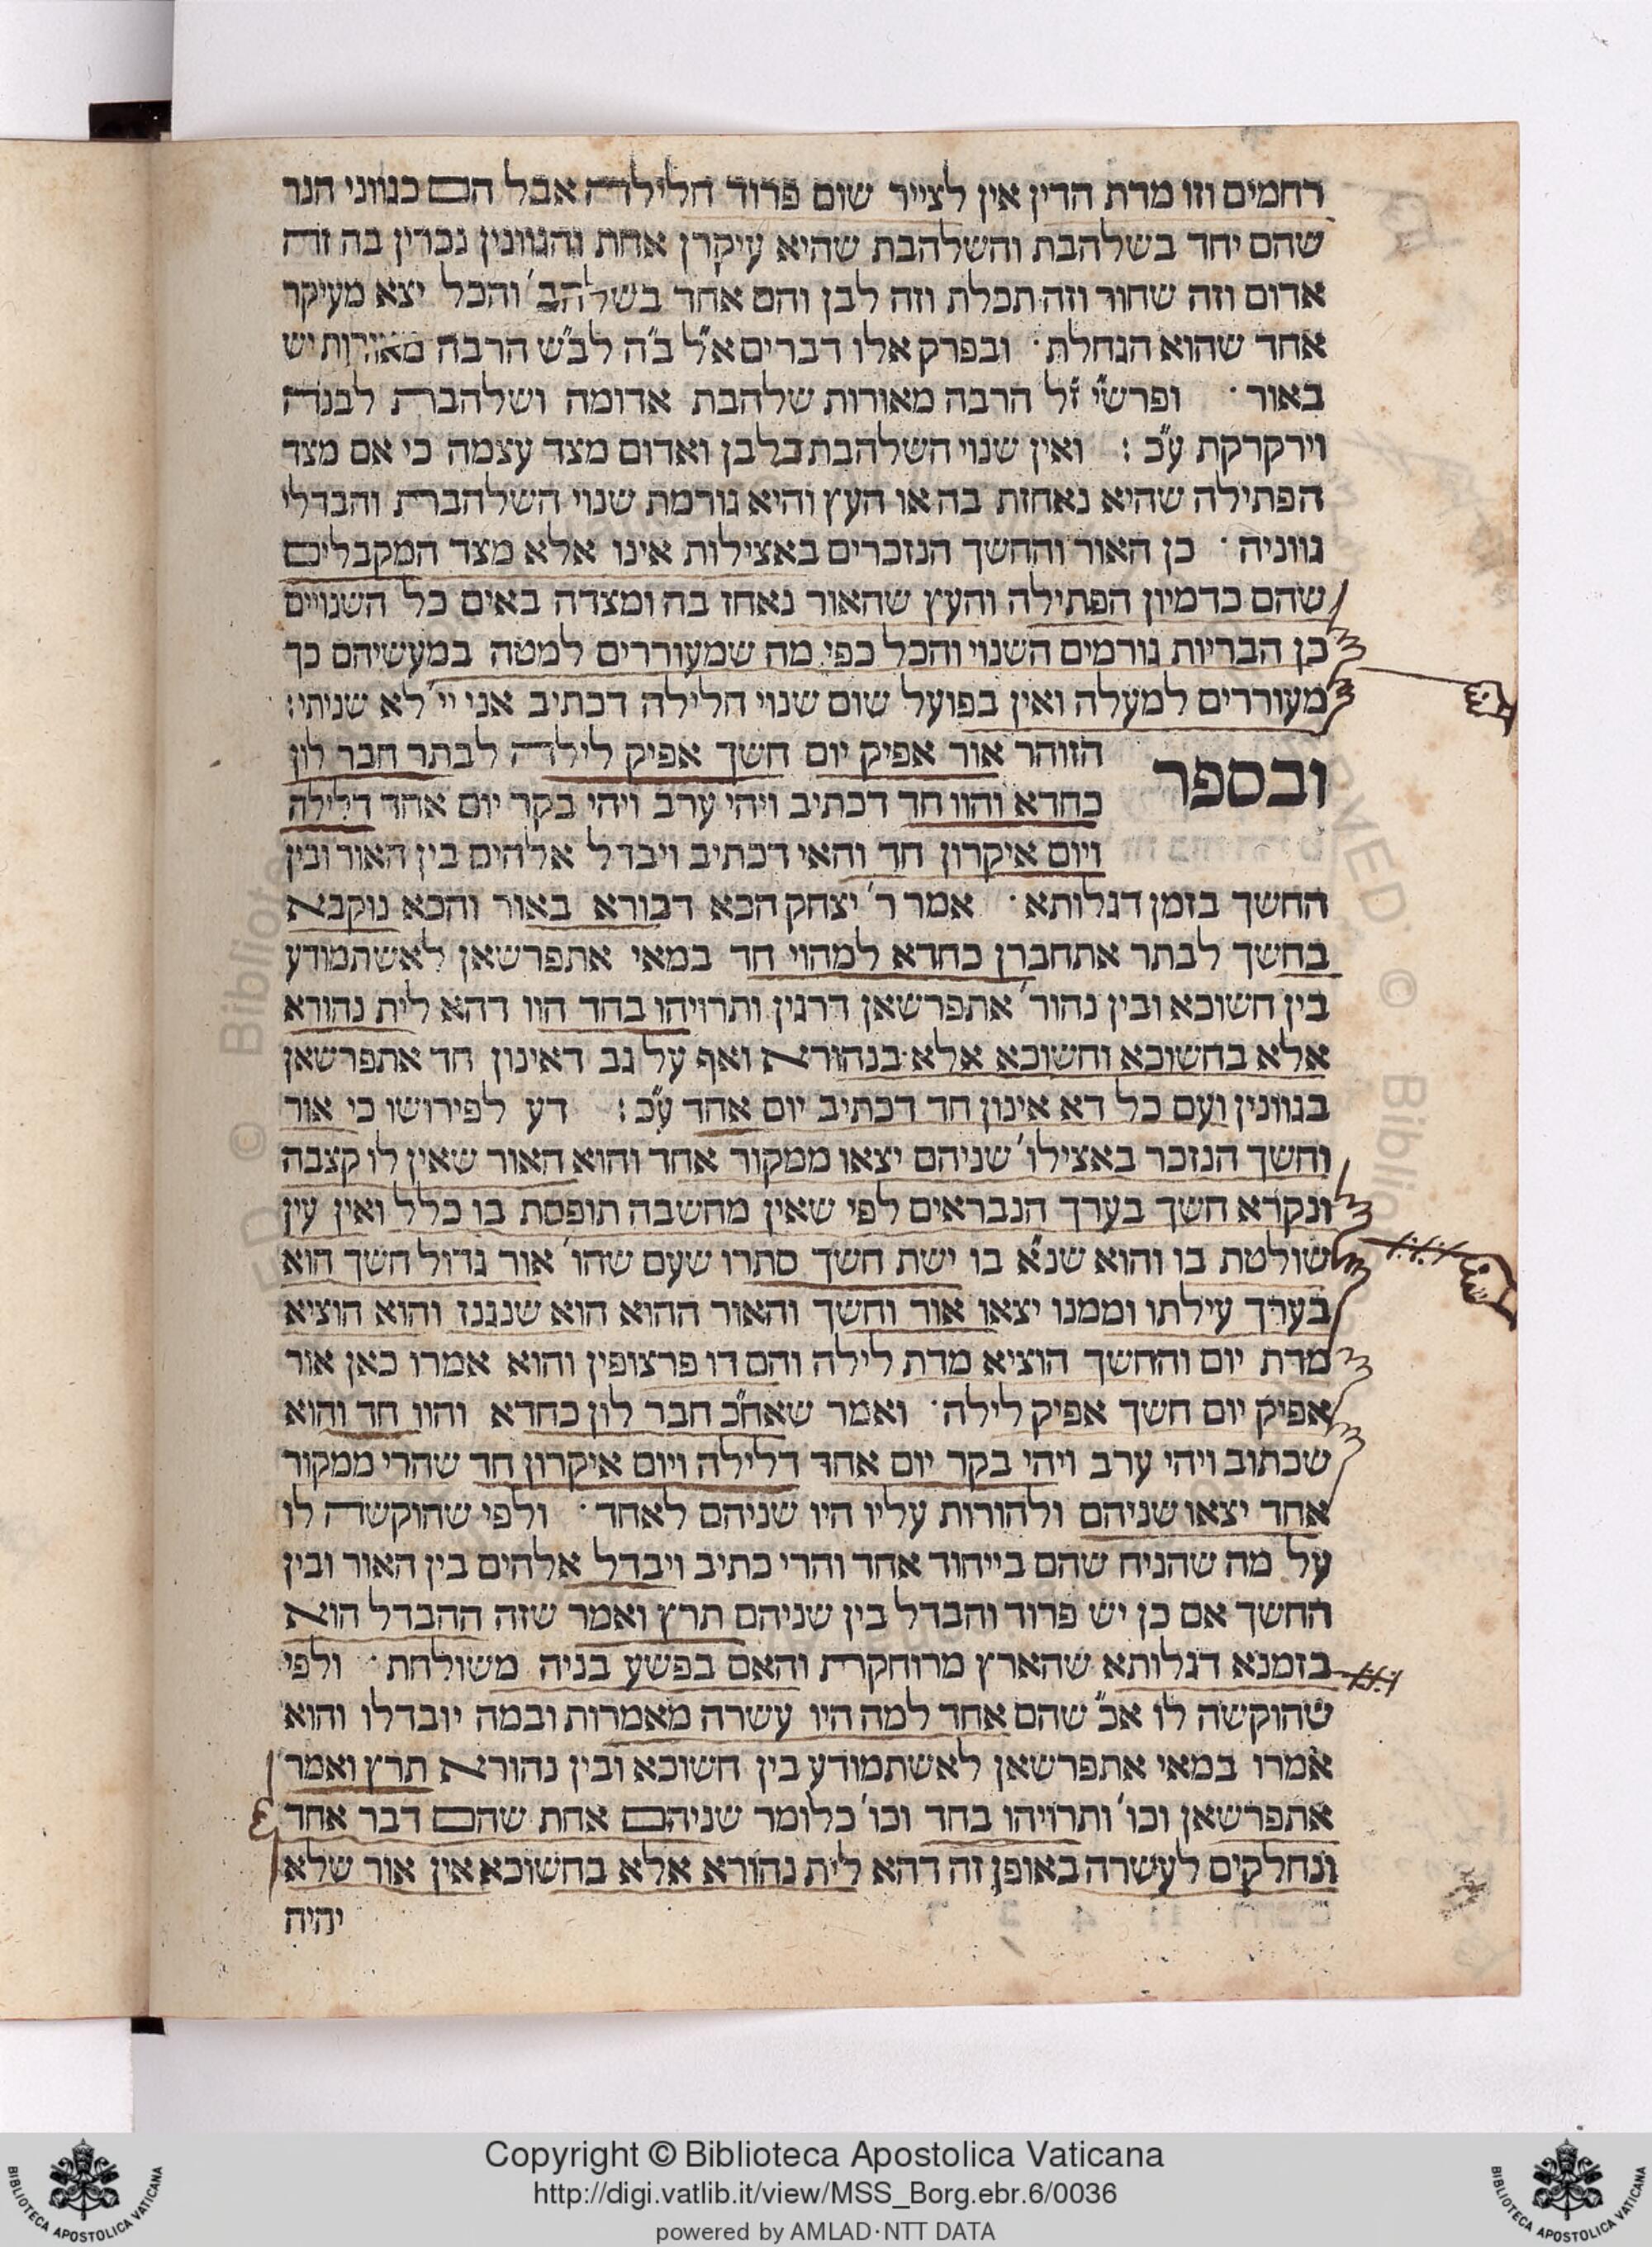 רחמים וזו מדת הדין אין לצייר שום פרוד חלילה אבל הם כגווני הנר
שהם יחד בשלהבת והשלהבת שהיא עיקרן אחת והגוונין נכרין בה זה
אדום וזה שחור וזה תכלת וזה לבן והם אחד בשלהב' והכל יצא מעיקר
אחד שהוא הגחלת · ובפרק אלו דברים א"ל ב"ה לב"ש הרבה מאורות יש
באור · ופרש"י ז"ל הרבה מאורות שלהבת אדומה ושלהבת לבנה
וירקרקת ע"כ : ואין שנוי השלהבת בלבן ואדום מצד עצמה כי אם מצד
הפתילה שהיא נאחזת בה או העץ והיא גורמת שנוי השלהבת והבדלי
גווניה · כן האור והחשך הנזכרים באצילות אינו אלא מצד המקבלים
שהם כדמיון הפתילה והעץ שהאור נאחז בה ומצדה באים כל השנויים
כן הבריות גורמים השנוי והכל כפי מה שמעוררים למטה במעשיהם כך
מעוררים למעלה ואין בפועל שום שנוי חלילה דכתיב אני יי' לא שניתי :
ובספר הזוהר אור אפיק יום חשך אפיק לילה לבתר חבר לון
כחדא והוו חד דכתיב ויהי ערב ויהי בקר יום אחד דלילה
ויום איקרון חד והאי דכתיב ויבדל אלהים בין האור ובין
החשך בזמן דגלותא · אמר ר' יצחק הכא דבורא באור והכא נוקבא
בחשך לבתר אתחברן כחדא למהוי חד במאי אתפרשאן לאשתמודע
בין חשוכא ובין נהור' אתפרשאן דרגין ותרויהו בחד הוו דהא לית נהורא
אלא בחשוכא וחשוכא אלא בנהורא ואף על גב דאינון חד אתפרשאן
בגוונין ועם כל דא אינון חד דכתיב יום אחד ע"כ : דע לפירושו כי אור
וחשך הנזכר באצילו' שניהם יצאו ממקור אחד והוא האור שאין לו קצבה
ונקרא חשך בערך הנבראים לפי שאין מחשבה תופסת בו כלל ואין עין
שולטת בו והוא שנ"א בו ישת חשך סתרו שעם שהו' אור גדול חשך הוא
בערך עילתו וממנו יצאו אור וחשך והאור ההוא הוא שנגנז והוא הוציא
מדת יום והחשך הוציא מדת לילה והם דו פרצופין והוא אמרו כאן אור
אפיק יום חשך אפיק לילה · ואמר שאח"כ חבר לון כחדא והוו חד והוא
שכתוב ויהי ערב ויהי בקר יום אחד דלילה ויום איקרון חד שהרי ממקור
אחד יצאו שניהם ולהורות עליו היו שניהם לאחד · ולפי שהוקשה לו
על מה שהניח שהם בייחוד אחד והרי כתיב ויבדל אלהים בין האור ובין
החשך אם כן יש פרוד והבדל בין שניהם תרץ ואמר שזה ההבדל הוא
בזמנא דגלותא שהארץ מרוחקת והאם בפשע בניה משולחת · ולפי
שהוקשה לו א"כ שהם אחד למה היו עשרה מאמרות ובמה יובדלו והוא
אמרו במאי אתפרשאן לאשתמודע בין חשוכא ובין נהורא תרץ ואמר
אתפרשאן וכו' ותרויהו בחד וכו' כלומר שניהם אחת שהם דבר אחד
ונחלקים לעשרה באופן זה דהא לית נהורא אלא בחשוכא אין אור שלא
יהיה
Copyright © Biblioteca Apostolica Vaticana
http://digi.vatlib.it/view/MSS_Borg.ebr.6/0036
powered by AMLAD·NTT DATA